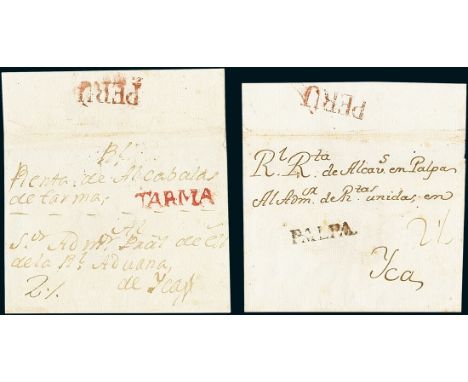 PERÚ
Rl.
Renta de Alcabalas
de tarma,
TARMA
Al
Sor. Admr. de
de la Rl. Aduana
de Yca,
2½
PERÚ
Rl. Rta. de Alcavs. en Palpa
Al Admor. de Rtas. unidas, en
PALPA
2½
Yca,